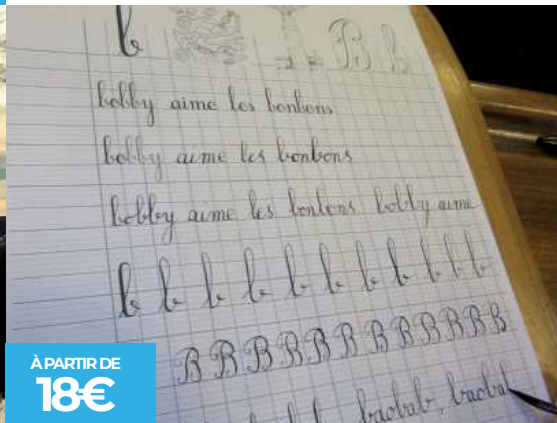 b B b
bobby aime les bonbons
bobby aime les bonbons
bobby aime les bonbons bobby aime
b b b b b b b b b b b
B B B B B B B B B B B
baobab, baobab
À PARTIR DE
18€